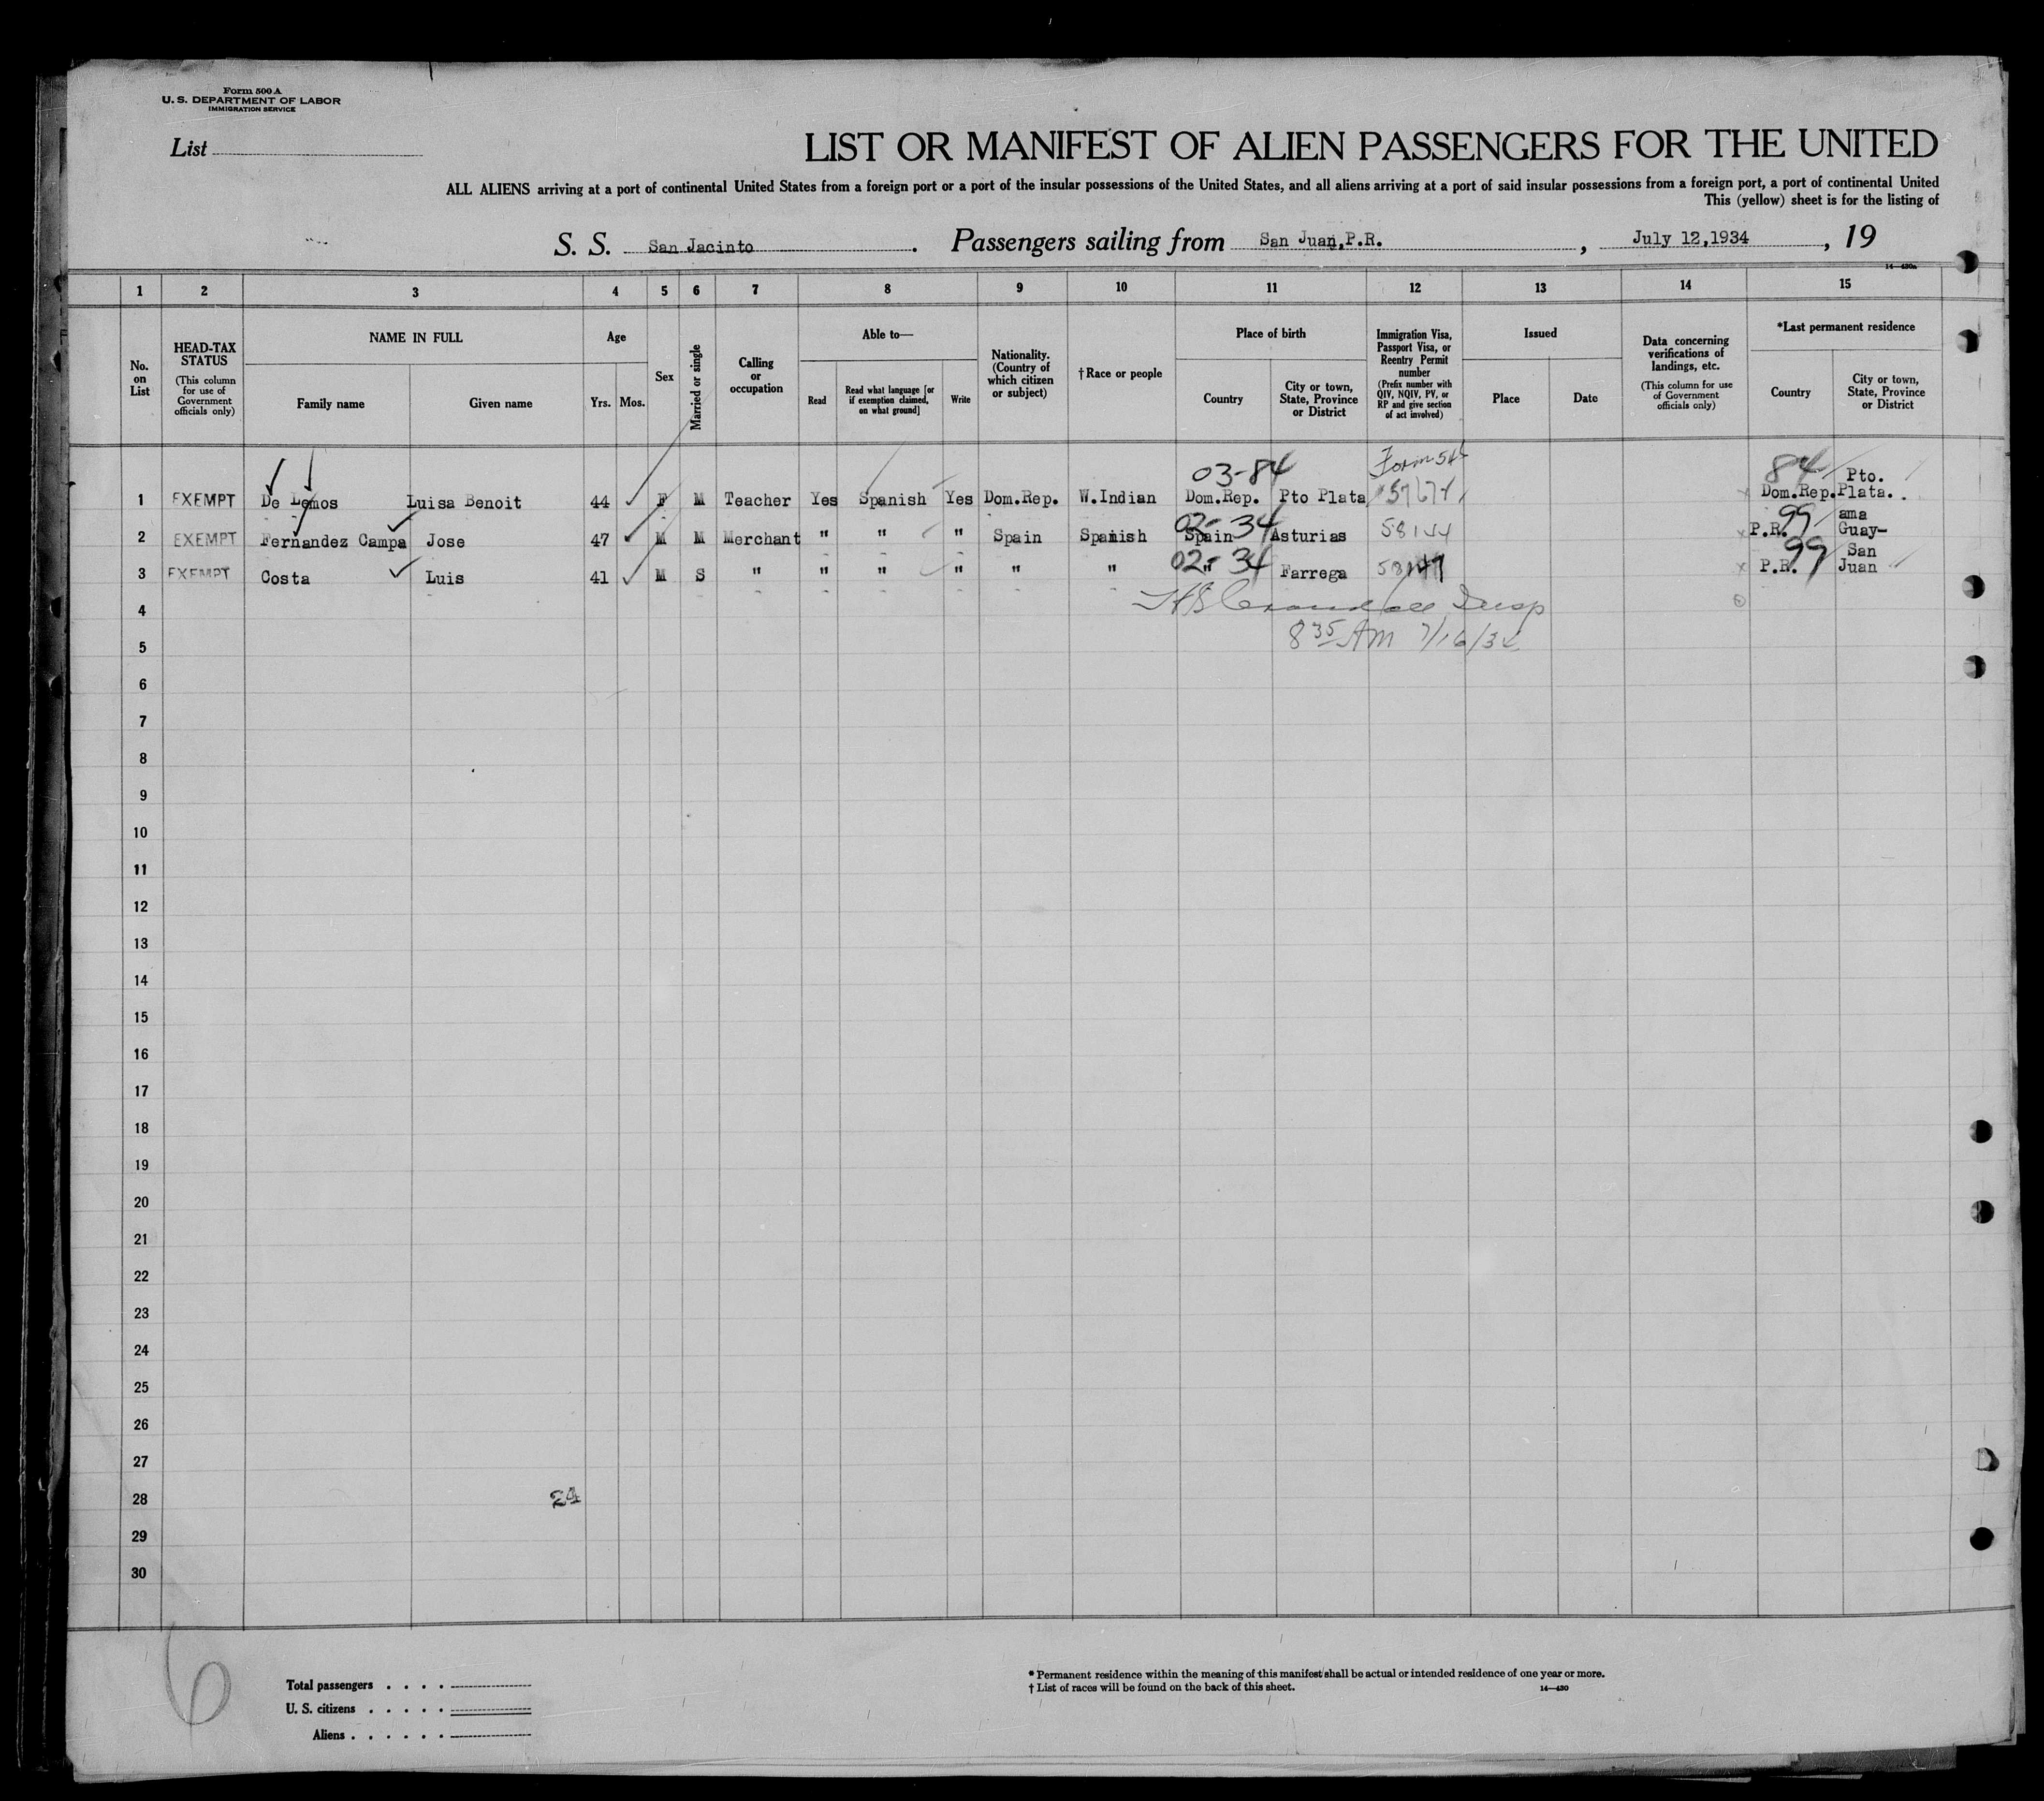 Form 500 A
U. S. DEPARTMENT OF LABOR
IMMIGRATION SERVICE
List
LIST OR MANIFEST OF ALIEN PASSENGERS FOR THE UNITED
ALL ALIENS arriving at a port of continental United States from a foreign port or a port of the insular possessions of the United States, and all aliens arriving at a port of said insular possessions from a foreign port, a port of continental United
This (yellow) sheet is for the listing of
S. S. San Jacinto. Passengers sailing from San Juan, P.R., July 12, 1934, 19
14—430a
1 2 3 4 5 6 7 8 9 10 11 12 13 14 15
No. on List
HEAD-TAX STATUS (This column for use of Government officials only)
NAME IN FULL
Family name Given name
Age
Yrs. Mos.
Sex
Married or single
Calling or occupation
Able to—
Read
Read what language [or if exemption claimed, on what ground]
Write
Nationality. (Country of which citizen or subject)
†Race or people
Place of birth
Country
City or town, State, Province or District
Immigration Visa, Passport Visa, or Reentry Permit number (Prefix number with QIV, NQIV, PV, or RP and give section of act involved)
Issued
Place Date
Data concerning verifications of landings, etc. (This column for use of Government officials only)
*Last permanent residence
Country
City or town, State, Province or District
03-84 Form 548 84 Pto.
1 EXEMPT De Lemos Luisa Benoit 44 F M Teacher Yes Spanish Yes Dom.Rep. W.Indian Dom.Rep. Pto Plata Dom.Rep. Plata.
02-34 99 ama
2 EXEMPT Fernandez Campa Jose 47 M M Merchant " " " Spain Spanish Spain Asturias 58144 P.R. Guay-
02-34 99 San
3 EXEMPT Costa Luis 41 M S " " " " " " " Farrega 58147 P.R. Juan
4 Insp
5 8 35 AM 7/16/34
6
7
8
9
10
11
12
13
14
15
16
17
18
19
20
21
22
23
24
25
26
27
28 24
29
30
6
Total passengers . . . .
U. S. citizens . . . . .
Aliens . . . . . .
* Permanent residence within the meaning of this manifest shall be actual or intended residence of one year or more.
† List of races will be found on the back of this sheet. 14—430